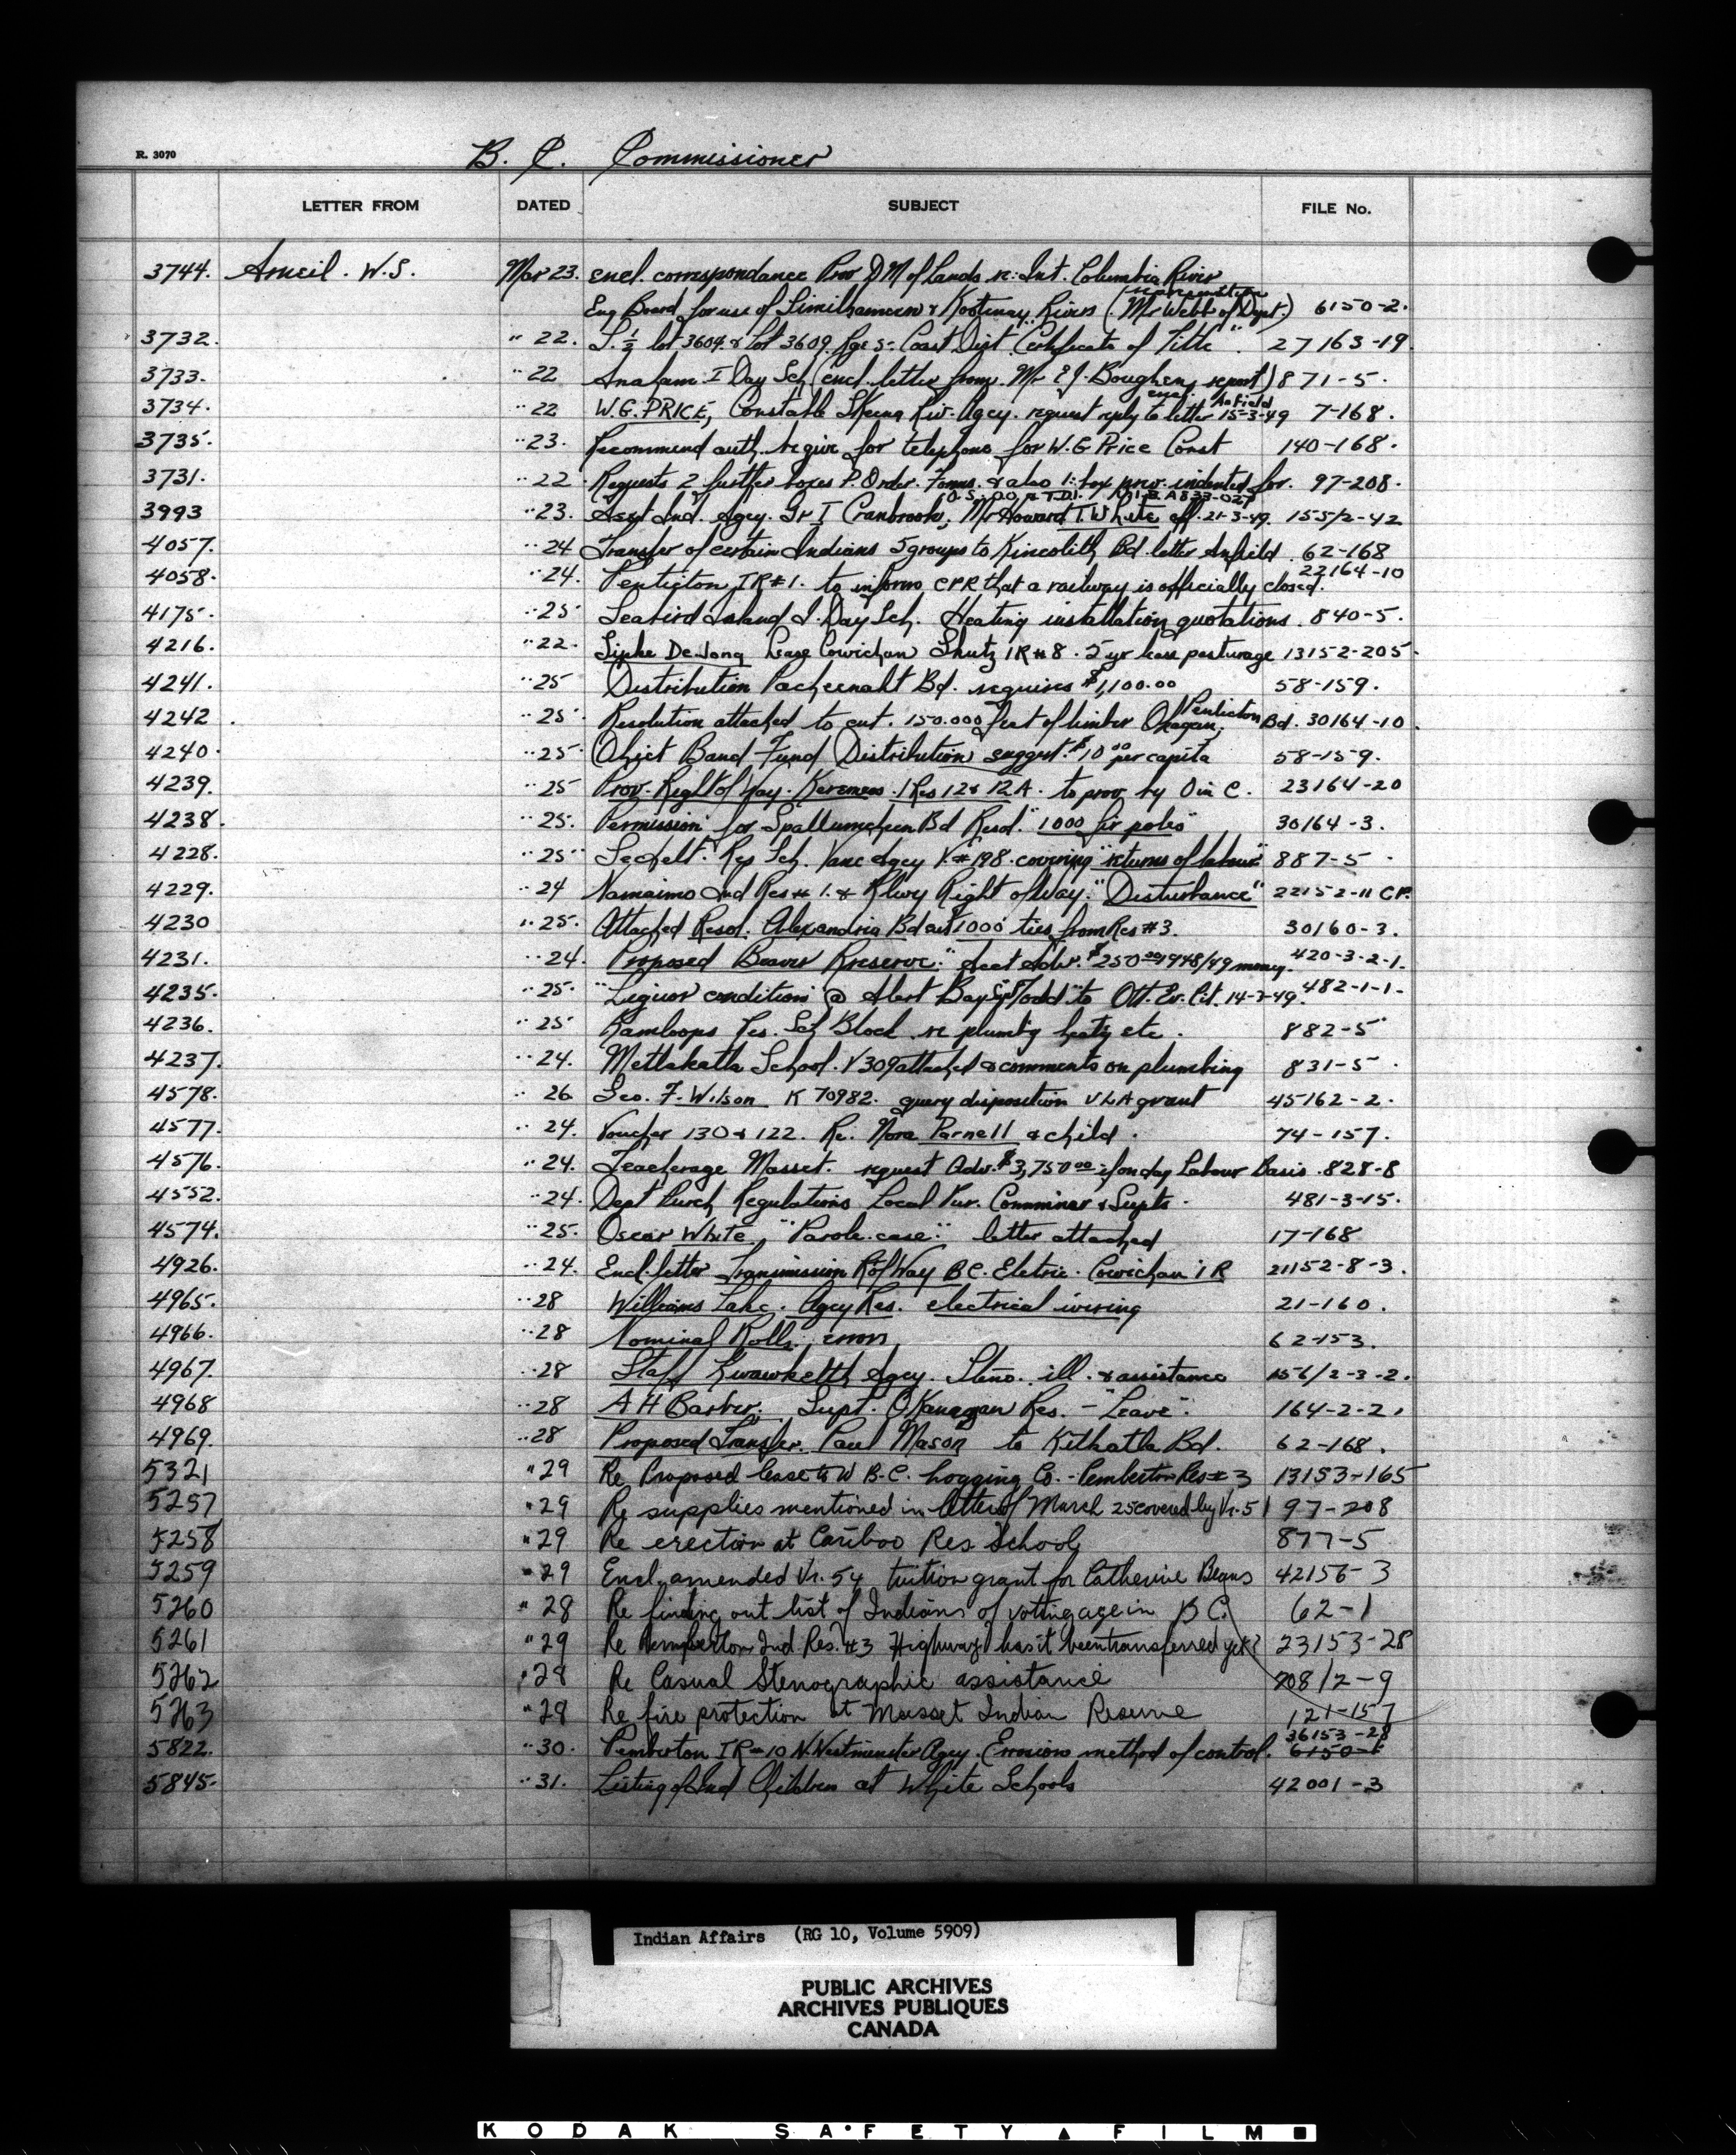 R. 3070
B. C. Commissioner
LETTER FROM DATED SUBJECT FILE No.
3744. Arneil. W.S. Mar 23. encl. correspondance Prov D M of Lands re: Int. Columbia River
Eng Board for use of Similkameen & Kootenay Rivers (Mr Webb of Dept.) 6150-2.
3732. " 22. S. ½ lot 3604. & Lot 3609. Rge 5. Coast Dist "Certificate of Title". 27163-19
3733. " 22 Anaham I Day Sch (encl. letter from Mr E J. Boughen, report) 871-5.
3734. " 22 W.G. PRICE, Constable Skeena Riv. Agcy. request reply to letter 15-3-49 7-168.
3735. " 23. Recommend auth. requir for telephone for W. G Price Const 140-168.
3731. " 22. Requests 2 further boxes P. Order. Forms. & also 1: box prev. indented for. 97-208.
3993 " 23. Asst Ind. Agcy. Gr I Cranbrook, Mr Howard T. White eff. 21-3-49. 155/2-42
4057. " 24 Transfer of certain Indians 5 groups to Kincolith Bd. letter Anfield. 62-168
4058. " 24. Penticton IR #1. to inform CPR that a railway is officially closed. 22164-10
4175. " 25 Seabird Island I. Day Sch. Heating installation quotations. 840-5.
4216. " 22. Sipke De Jong Lease Cowichan Skutz IR #8. 5 yr lease pasturage 13152-205.
4241. " 25 Distribution Pacheenaht Bd. requires $1,100.00 58-159.
4242. " 25. Resolution attached to cut. 150.000 feet of timber Okagan, Penticton Bd. 30164-10.
4240. " 25 Ohiet Band Fund Distribution suggest. $10 00 per capita 58-159.
4239. " 25 Prov. Right of Way. Keremeos. I Res 12 & 12A. to prov by O in C. 23164-20
4238. " 25. Permission for Spallumcheen Bd Resol. "1000 fir poles" 30164-3.
4228. " 25 Sechelt. Res Sch. Vanc Agcy V. #198. covering "returns of labour" 887-5.
4229. " 24 Nanaimo Ind Res # 1. & Rlwy Right of Way. "Disturbance" 22152-11 CP.
4230 " 25. Attached Resol. Alexandria Bd cut 1000 ties from Res #3. 30160-3.
4231. " 24. Proposed Beaver Rreserve. Adv. $250.00 1948/49 money. 420-3-2-1.
4235. " 25. "Liquor conditions @ Alert Bay" Todd to Ott. Ev. Cit. 14-3-49. 482-1-1.
4236. " 25 Kamloops Res. Sch Block re plumbg heatg etc. 882-5
4237. " 24. Metlakatla School. V 309 attached & comments on plumbing 831-5.
4578. " 26 Geo. F. Wilson K 70982. query disposition VLA grant 45162-2.
4577. " 24. Voucher 130 & 122. Re. Nora Parnell & child. 74-157.
4576. " 24. Teacherage Masset. request Adv. $3,750.00 if on day Labour Basis. 828-8
4552. " 24. Dept Purch Regulations Local Pur. Comminer & Supts. 481-3-15.
4574. " 25. Oscar White, "Parole case." letter attached 17-168
4926. " 24. Encl. letter Transmission R of Way B.C. Eletric. Cowichan I R 21152-8-3.
4965. " 28 Williams Lake. Agcy Res. electrical wiring 21-160.
4966. " 28 Nominal Rolls. errors 62-153.
4967. " 28 Staff Kwawkelth Agcy. Steno. ill. & assistance 156/2-3-2.
4968 " 28 A H Barber. Supt. OKanagan Res. - "Leave". 164-2-2.
4969. " 28 Proposed Transfer. Paul Mason to Kitkatla Bd. 62-168.
5321 " 29 Re Proposed lease to W B.C. Logging Co. - Pemberton Res # 3 13153-165
5257 " 29 Re supplies mentioned in letter of March 25 covered by Vr. 51 97-208
5258 " 29 Re erection at Cariboo Res School 877-5
5259 " 29 Encl. amended Vr. 54 tuition grant for Catherine Beans 42156-3
5260 " 28 Re finding out list of Indians of voting age in B C. 62-1
5261 " 29 Re Pemberton Ind. Res. #3 Highway has it been transferred yet? 23153-28
5262 " 28 Re Casual Stenographic assistance 208/2-9
5263 " 29 Re fire protection at Masset Indian Reserve 121-157
5822. " 30. Pemberton IR - 10 N. Westminster Agcy. Errosion method of control. 36153-28
5845. " 31. Listing of Ind Children at White Schools 42001-3
Indian Affairs (RG 10, Volume 5909)
PUBLIC ARCHIVES
ARCHIVES PUBLIQUES
CANADA
KODAK SAFETY FILM